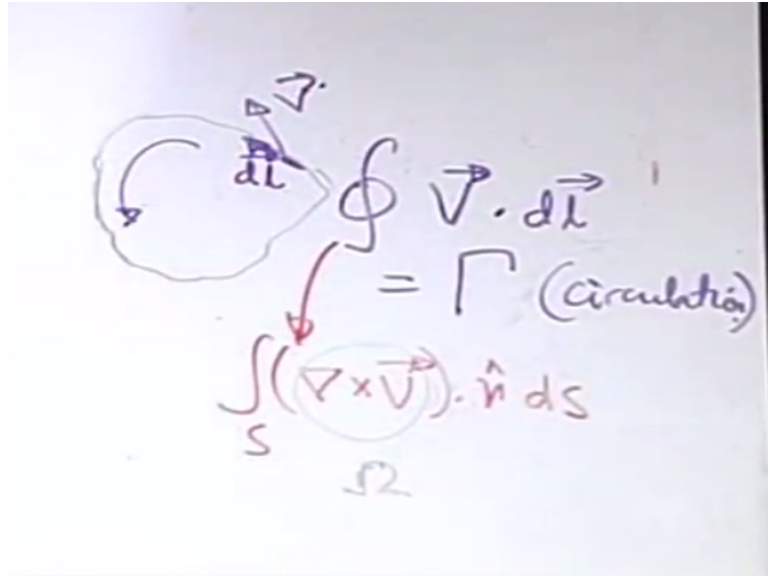 V⃗
dl
∮ V⃗ . dl⃗
= Γ (circulation)
∫ₛ (∇ × V⃗) . n̂ ds
Ω